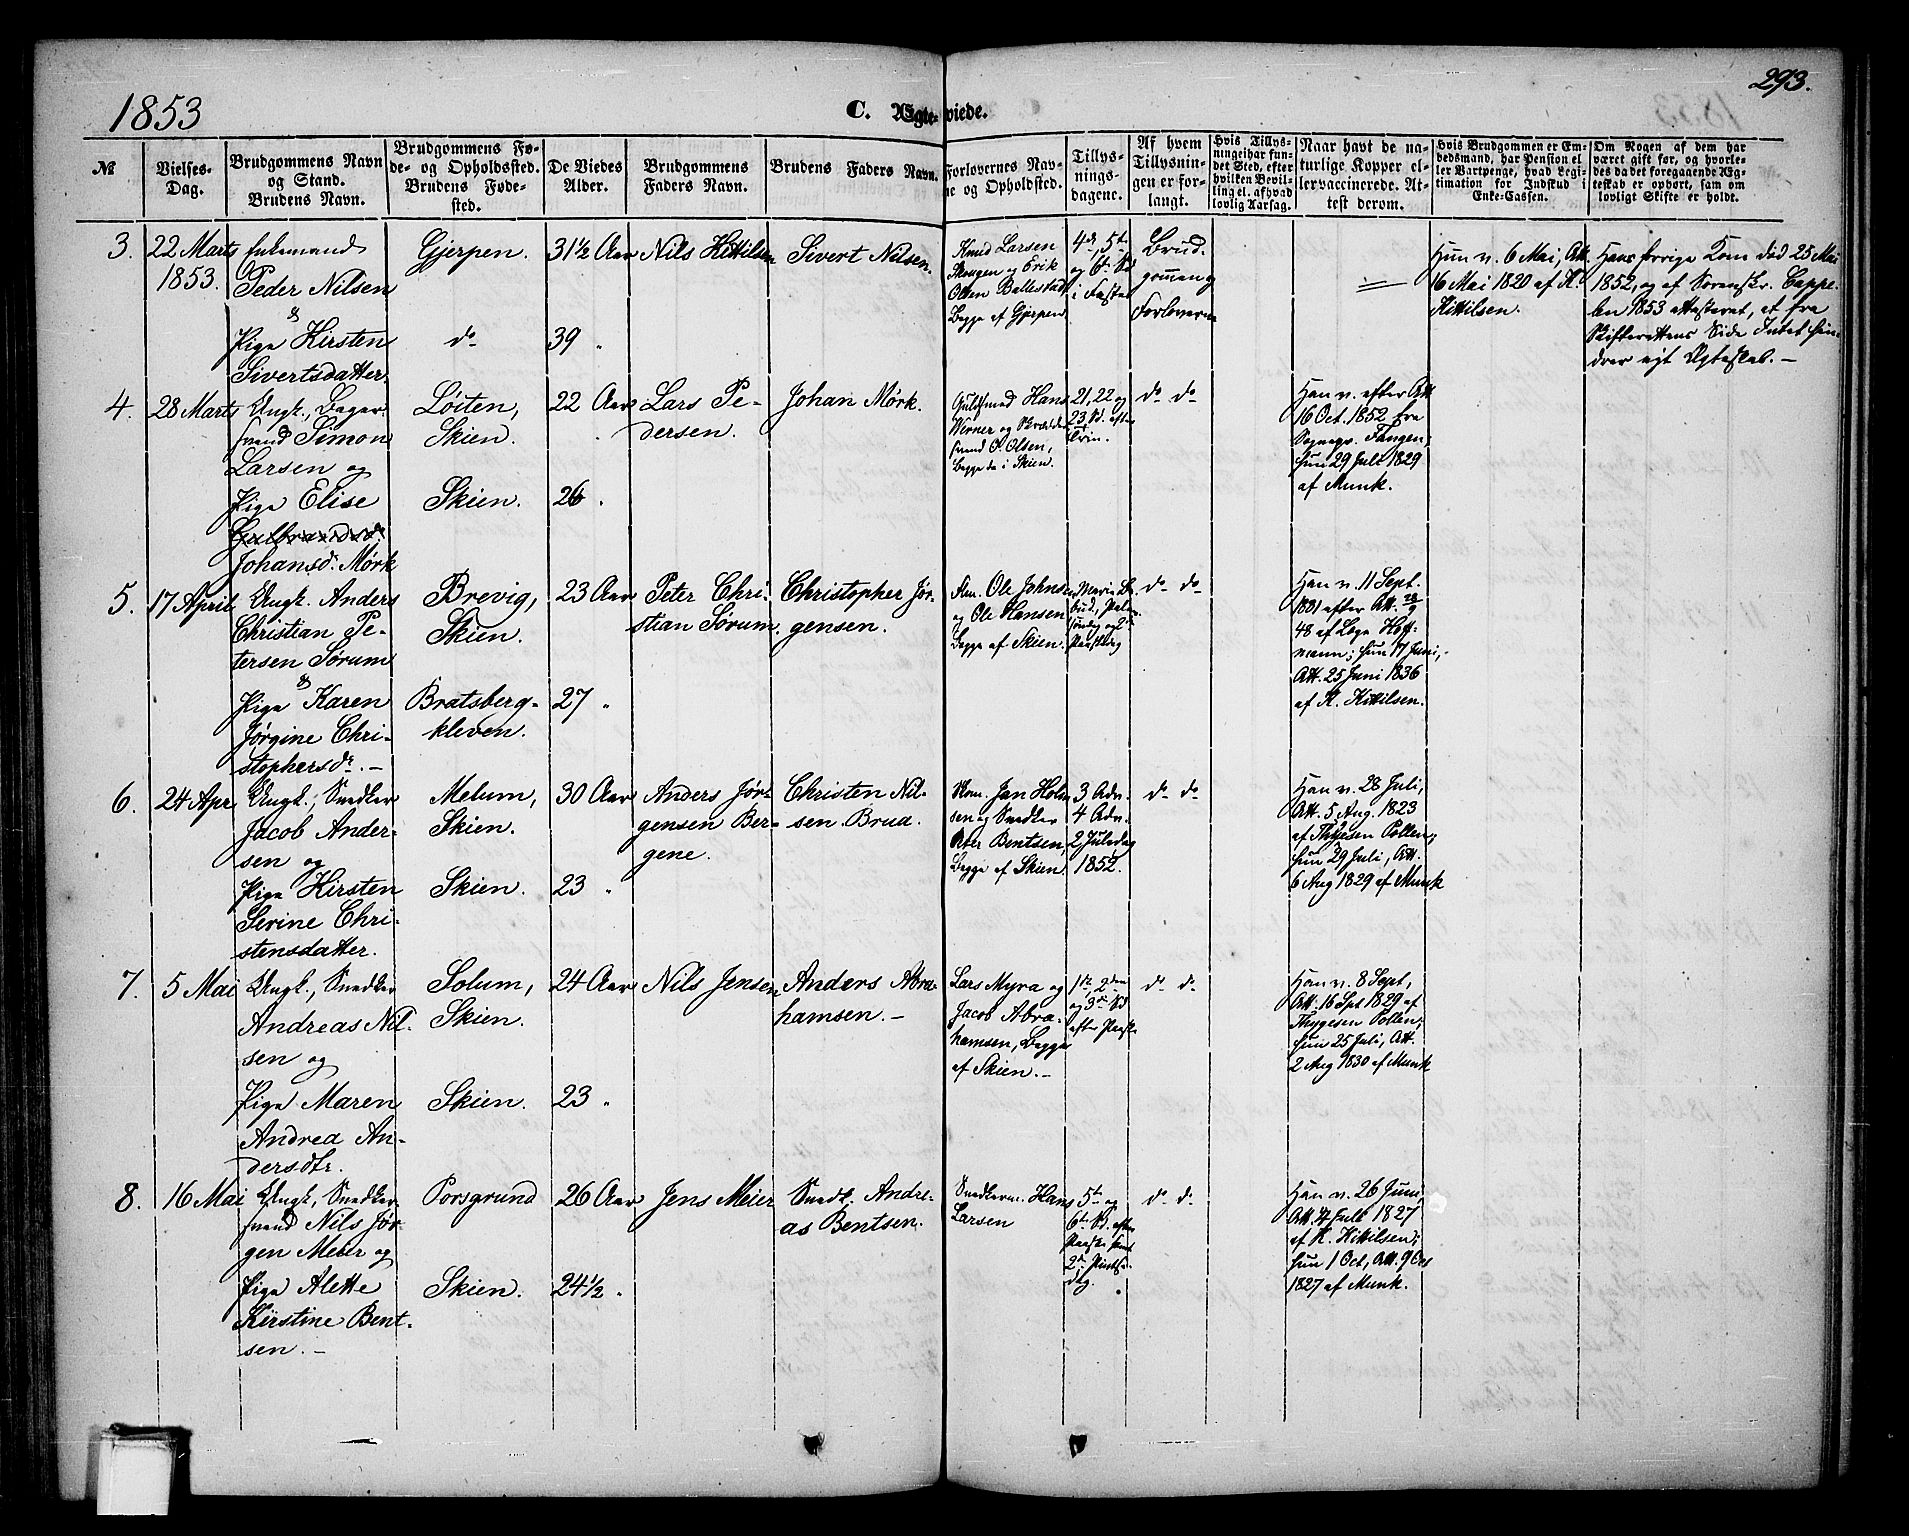 293.
1853
C. Ægteviede.
№
Vielses-Dag.
Brudgommens Navn og Stand. Brudens Navn.
Brudgommens Fø-de- og Opholdssted. Brudens Føde-sted.
De Viedes Alder.
Brudgommens Faders Navn.
Brudens Faders Navn.
Forlovernes Nav-ne og Opholdsted.
Tillys-nings-dagene.
Af hvem Tillysnin-gen er for-langt.
Hvis Tillys-ningei har fun-det Sted, efter hvilken Bevil-ling el. af hvad lovlig Aarsag.
Naar havt de na-turlige Kopper el-ler vaccinerede. At-test derom.
Hvis Brudgommen er Em-bedsmand, har Pension el-ler Vartpenge, hvad Legi-timation for Indskud i Enke-Cassen.
Om Nogen af dem har været gift før, og hvorle-des da det foregaaende Æg-teskab er ophørt, sam om lovligt Skifte er holdt.
3.
22 Marts
1853.
Enkemand
Peder Nilsen
&
Pige Kirsten
Sivertsdatter.
Gjerpen.
do
31½ Aar
39 "
Nils Kittilsen
Sivert Nilsen.
Knud Larsen
Skougen og Erik
Olsen Ballestad
Begge af Gjerpen
4de, 5te
og 6te Sd
i Faste
Brud-
gommen og
Forloverne
Hun v. 6 Mai, Att.
16 Mai 1820 af K.
Kittilsen.
Hans forrige Kone død 25 Mai
1852, og af Sorenskr. Cappe-
len 1853 attesteret, at fra
Skifterettens Side Intet hin-
drer nyt Ægteskab. –
4.
28 Marts
Ungk., Bager-
svend Simon
Larsen og
Pige Elise
Gulbrandsd.
Johansd. Mørk
Løiten,
Skien.
Skien.
22 Aar
26 "
Lars Pe-
dersen.
Johan Mørk.
Guldsmed Hans
Werner og Skrædder
svend O. Olsen,
Begge da i Skien.
21, 22 og
23 Sd. efter
Trin.
do do
Han v. efter Att
16 Oct. 1852 fra
Sognepr. Fangen;
hun 29 Juli 1829
af Munk.
5.
17 April
Ungk. Anders
Christian Pe-
tersen Sørum
&
Pige Karen
Jørgine Chri-
stophersdr. –
Brevig,
Skien.
Bratsberg-
kleven.
23 Aar
27 "
Peter Chri-
stian Sørum.
Christopher Jør-
gensen.
Ole Johnsen
og Ole Hansen
Begge af Skien.
Maria Be-
bud., Palme
søndag og 2den
Paaskedag
do do
Han v. 11 Sept.
1831 efter Att. 28/9
48 af Læge Hoff-
mann; hun 17 Juni,
Att. 25 Juni 1836
af K. Kittilsen.
6.
24 Apr
Ungk., Snedker
Jacob Ander-
sen og
Pige Kirsten
Serine Chri-
stensdatter.
Melum,
Skien.
Skien.
30 Aar
23 "
Anders Jør-
gensen Ber-
gene.
Christen Nil-
sen Brua.
Skom. Jan Holm
sen og Snedker
Peter Bentsen,
Begge af Skien
3 Adv.
4 Adv.
2 Juledag
1852.
do do
Han v. 28 Juli,
Att. 5 Aug. 1823
af Thygesen Pollen;
hun 29 Juli, Att.
6 Aug 1829 af Munk
7.
5 Mai
Ungk., Snedker
Andreas Nil-
sen og
Pige Maren
Andrea An-
dersdtr.
Solum,
Skien.
Skien.
24 Aar
23 "
Nils Jensen
Anders Abra-
hamsen. –
Lars Myra og
Jacob Abra-
hamsen, Begge
af Skien. –
1ste, 2den
og 3de Sd
efter Paaske
do do
Han v. 8 Sept,
Att. 16 Spt 1829 af
Thygesen Pollen;
hun 25 Juli, Att.
2 Aug 1830 af Munk
8.
16 Mai
Ungk., Snedker-
svend Nils Jør-
gen Meier og
Pige Alette
Kirstine Bent-
sen. –
Porsgrund
Skien.
26 Aar
24½ "
Jens Meier
Snedk. Andre-
as Bentsen.
Snedkerm. Hans
Larsen
5te og
6te Sd. efter
Paaske samt
2den Pintse-
dag.
do do
Han v. 26 Juni,
Att. 4 Juli 1827
af K. Kittilsen;
hun 1 Oct, Att. 9 Oct
1827 af Munk.